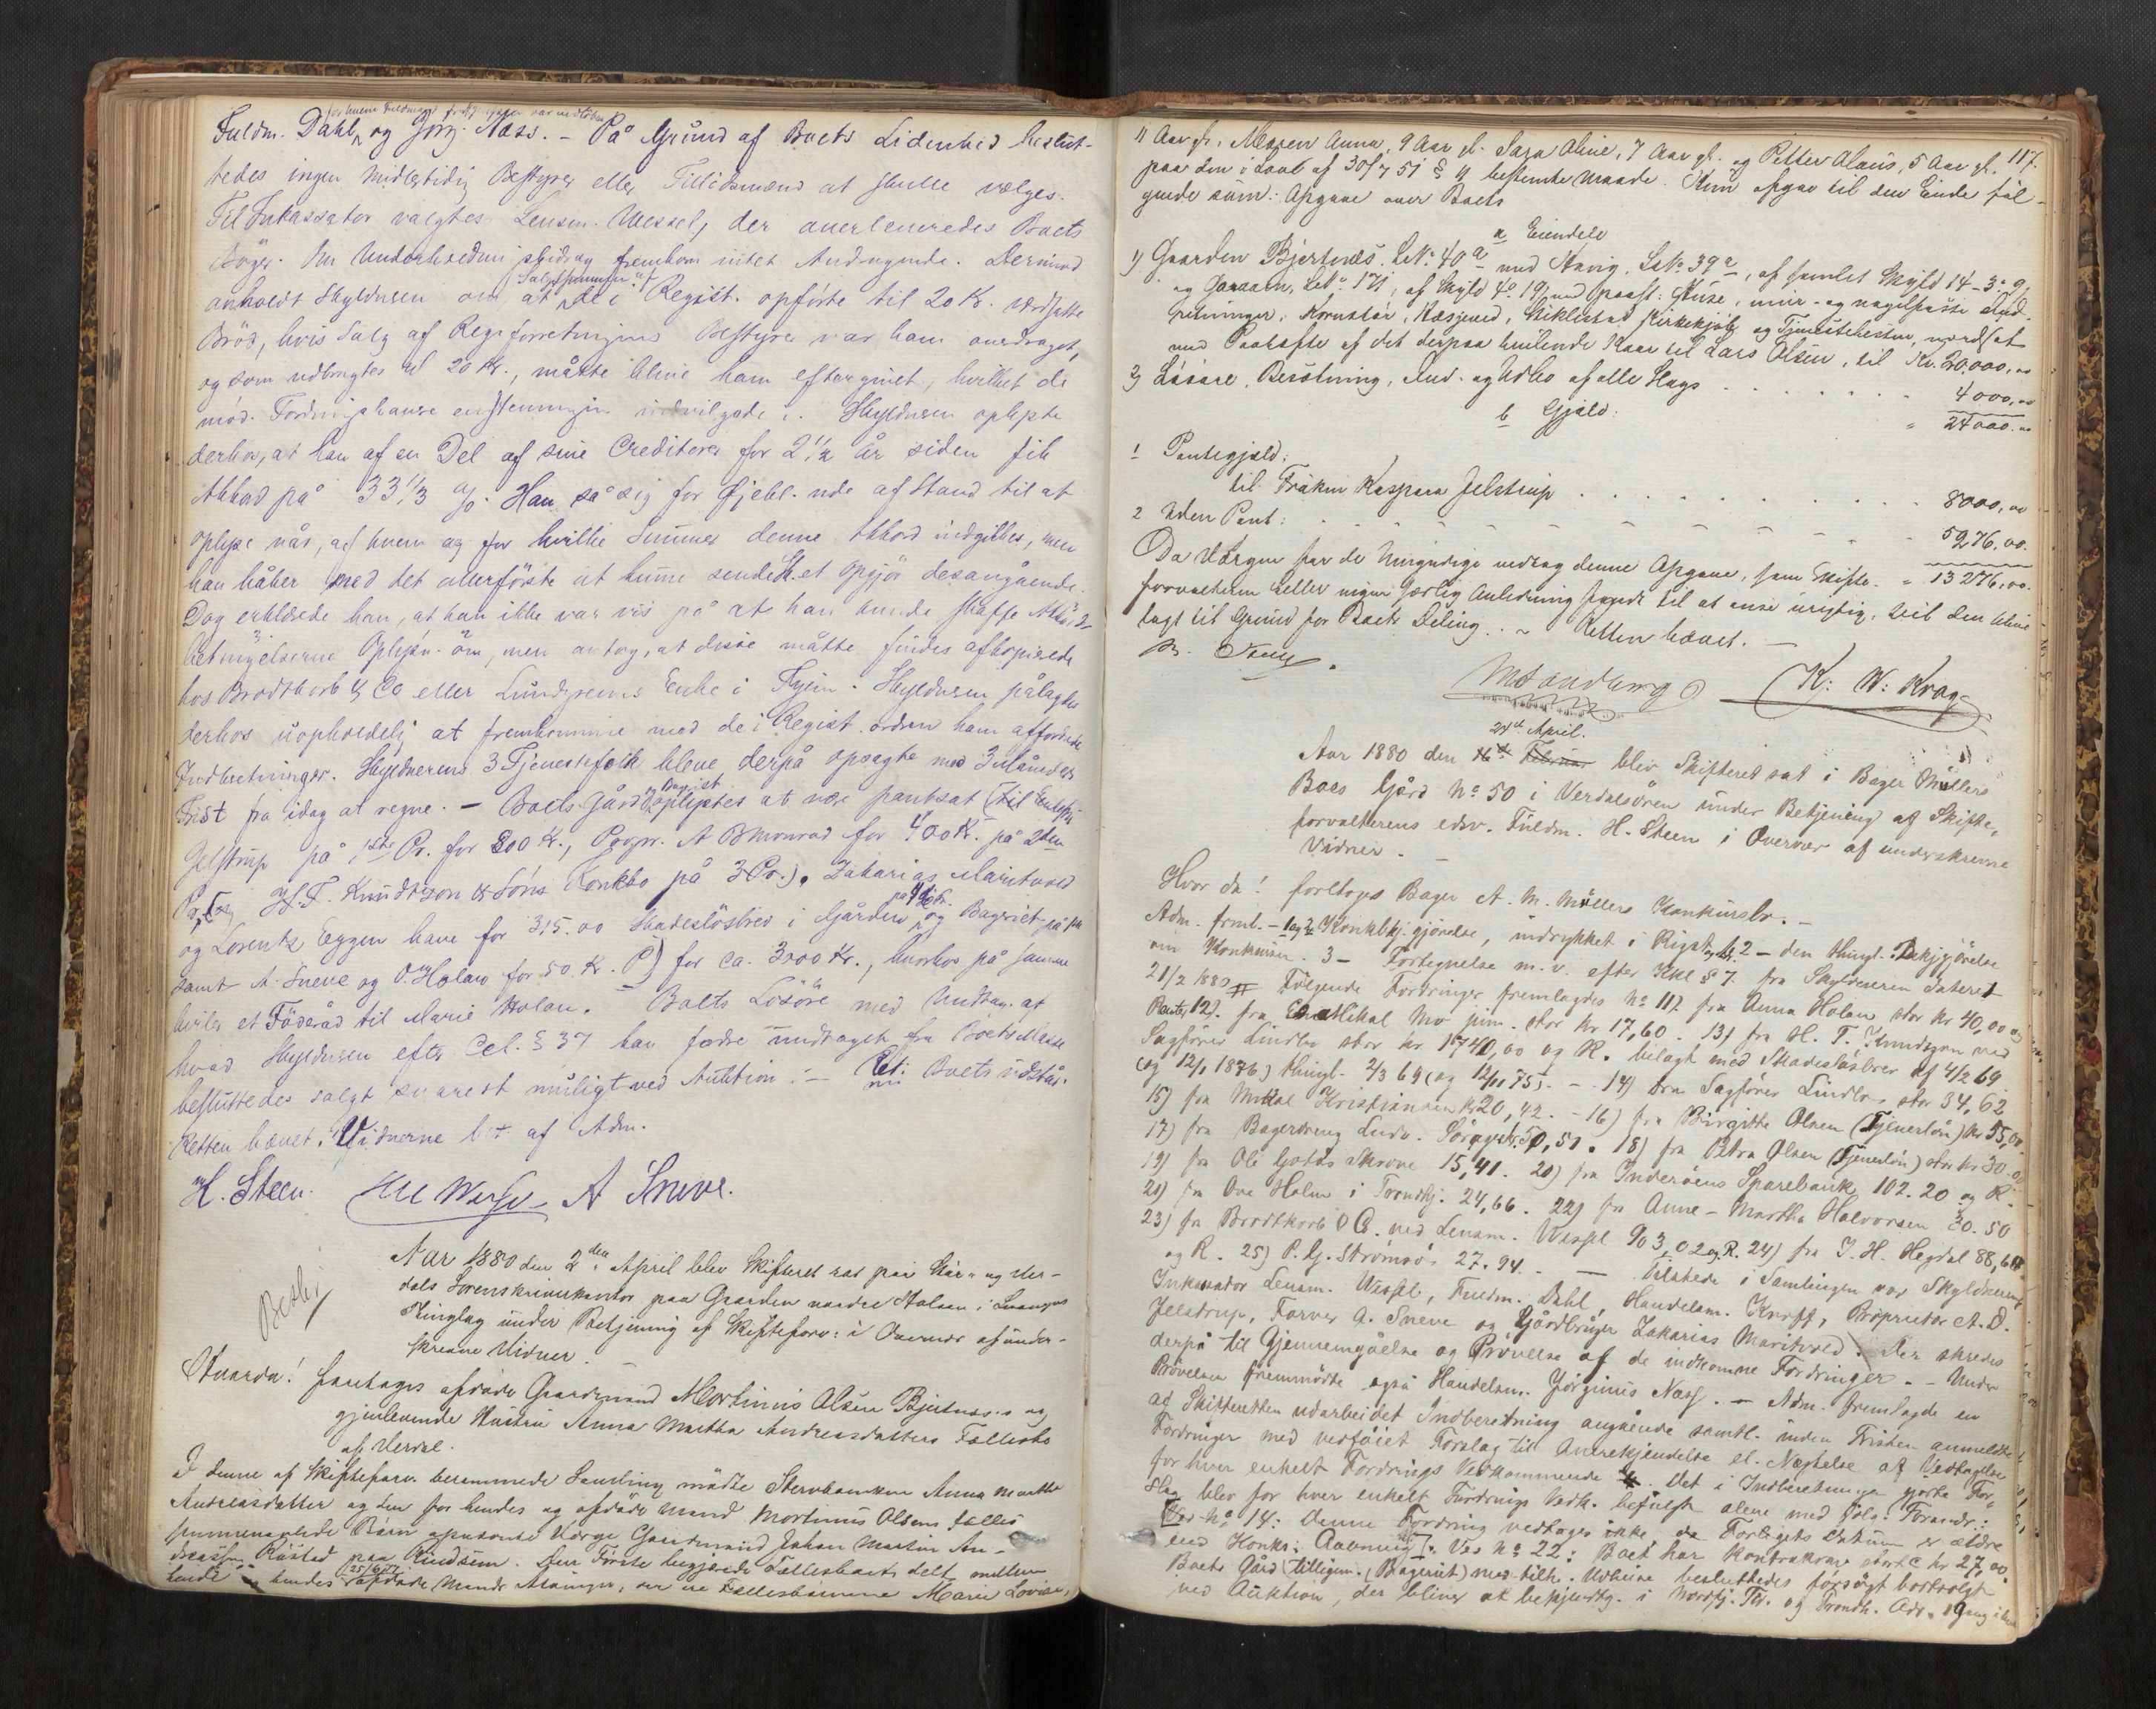 Fuldm. Dahl og Jørg. Næss. – På Grund af Boets Lidenhed beslut-
tedes ingen midlertidig Bestyrer eller Tillidsmænd at skulle vælges.
Til Inkassator valgtes Lensm. Wessel, der overleveredes Boets
Bøger. Om Underholdningsbidrag fremkom intet Andragende. Dermed
Salgssummen
anholdt Skyldneren om at de i Regist. opførte til 20 Kr. værdsatte
Brød, hvis Salg af Regisforretningens Bestyrer var ham overdraget,
og som udbragtes til 20 Kr., måtte blive ham eftergivet, hvilket de
mød. Fordringshavere enstemmigen indvilgede i. Skyldneren oplyste
derhos, at han af en Del af sine Creditorer for 2 1/2 år siden fik
Akkord på 33 1/3 %. Han så sig for Øjebl. ude af Stand til at
oplyse når, af hvem og for hvilke Summer denne Akkord indgikkes, men
han håber med det allerførste at kunne sende Sk. et Opgjør desangående.
Dog erklærede han, at han ikke var vis på at han kunde skaffe
Oplysn. om, men antog, at disse måtte findes afkopierede
hos Brodtkorb & Co eller Lundgreens Enke i Thjem. Skyldneren pålagdes
derhos uopholdelig at fremkomme med de i Regist. ordren ham affordrede
Indberetninger. Skyldnerens 3 Tjenestefolk bleve derpå opsagte med 3 Måneders
Frist fra idag at regne. – Boets Gård oplystes at være pantsat (til
Jelstrup på 1ste Pr. for 800 Kr., Propr. A B Monrad for 400 Kr. på 2den
Pr., H. F. Knudtzon & Søns Konkbo på 3 Pr.). Zakarias Maritvold
på 4de Pr.
og Lorentz Eggen have for 315.00 Skadesløsbrev i Gården og Bageriet
samt A. Sneve og O. Holan for 50 Kr. P) for ca. 3000 Kr., hvorhos på samme
hviler et Føderåd til Marie Holan. – Boets Løsøre med Undtag. af
hvad Skyldneren efter Cel. § 37 kan fordre undtaget fra Boets Masse
besluttedes salgt snarest muligt ved Auktion. –
Retten hævet. Vidnerne bet. af Adm.
H. Steen. A Sneve.
Aar 1880 den 2den April blev Skifteret sat paa Stør- og Vær-
dals Sorenskriverkontor paa Gaarden nordre Holan i Levangers
Thinglag under Betjening af Skifteforv: i Overvær af under-
skrevne Vidner.
Hvorda! foretoges afdøde Gaardmand Mortinus Olsen Bjertnes's og
gjenlevende Hustru Anna Martha Andreasdatters Fællesbo
af Verdal.
I denne af Skifteforv. berammede Samling mødte Stervboenken Anna Martha
Andreasdatter og den for hendes og afdøde Mand Mortinus Olsens fælles
sammenavlede Børn opnævnte Værge Gaardmand Johan Martin An-
dreassen Røstad paa Rindsem. Den Første begjærede Fællesboets delt mellem
hende og hendes afdøde Mands Arvinger, der ere Fællesbørnene Marie Lovise,
117.
11 Aar gl., Maren Anna, 9 Aar gl. Sara Oline, 7 Aar gl. og Petter Olaus, 5 Aar gl.
paa den i Lov af 30/7 51 § 11 bestemte Maade. Hun afgav til den Ende føl-
gende sum: Opgave over Boets
a Eiendele
1) Gaarden Bjertnæs. LNo. 40a med Stavig, LNo. 39a, af samlet Skyld 14 – 3 – 9,
og Garaam, LNo. 171, af Skyld 4o 19, med paast: Huse, mur- og nagelfaste Ind-
retninger, Kornstør, Hæsjeved, Stiklestad Kirkekjøb og Tjenestehesten, værdsat
med Paahefte af det derpaa hvilende Kaar til Lars Olsen, til Kr. 20,000,00
2) Løsøre, Besætning, Ind- og Udbo af alle Slags . . . . . 4000,00
„ 24000.00
b Gjæld:
1 Pantegjæld:
til Frøken Kaspara Jelstrup . . . . . . . 8000,00
2 Uden Pant: – – – – – – – 5276,00.
„ 13276,00.
Da Værgen for de Umyndige vedtog denne Opgave, som Skifte-
forvalteren heller ingen Føielig Anledning fandt til at anse urigtig, vil den blive
lagt til Grund for Boets Deling. – Retten hævet. –
K: W: Krag
24de April.
Aar 1880 den blev Skifteret sat i Bager Møllers
Boes Gård No 50 i Verdalsøren under Betjening af Skifte-
forvalterens edsv. Fuldm. H. Steen i Overvær af underskrevne
Vidner. –
Hvor da! foretoges Bager A. M. Møllers Konkursbo. –
Adm. freml. – 1 og 2 Konkbkj. gjørelse, indrykket i Rigst. 2 – den thingl. Bekjgjørelse
om Konkursen. 3 – Fortegnelse m. v. efter Kkl § 7. fra Skyldneren dateret
21/2 1880 Følgende Fordringer fremlagdes No 11) fra Anna Holan stor kr 40,00 og
Rent, 12). fra Mikal Mo jun. stor kr 17,60. 13) fra H. F. Knudtzon ved
Sagfører Lindbo stor kr 1740,00 og R. belagt med Skadesløsbrev af 4/2 69
(og 12/1 1876) thingl. 2/3 69 (og 12/11 75). – 14) fra Sagfører Lindbo stor 34,62
15) fra Mikal Kristiansen kr 20,42. – 16) fra Birgitte Olsen (Tjenerløn) kr 55,00.
17) fra Bagersveng Ludv. 50,50. 18) fra Petra Olsen (Tjenerløn) stor kr 30.00
19) fra Ole Gotås Skrove 15,41. 20) fra Inderøens Sparebank 102.20 og R.
21) fra Ove Holm i Trondhj. 24,66. 22) fra Anne-Martha Halvorsen 30.50
23) fra Brodtkorb & C. ved Lensm. Wessel 903,02 og R. 24) fra J. H. Hegdal 88,61
og R. 25) P. G. Strømsø 27.94. – – Tilstede i Samlingen var Skyldneren
Inkassator Lensm. Wessel, Fuldm. Dahl, Handelsm. Knoff, Proprietær A. D.
Jelstrup, Farver A. Sneve og Gårdbruger Zakarias Maritvold. Der skredes
derpå til Gjennemgåelse og Prøvelse af de indkomne Fordringer. – Under
Prøvelsen fremmødte også Handelsm. Jørginus Næss. – Adm. fremlagde en
af Skifteretten udarbeidet Indberetning angående samtl. inden Fristen anmeldte
Fordringer med vedføiet Forslag til Anerkjendelse el. Nægtelse af Vedtagelse
for hver enkelt Fordrings Vedkommende. Det i Indberetningen gjorte For-
slag blev for hver enkelt Fordrings Vedk. befulgt alene med følg. Forandr.:
Ved No 14: Denne Fordring vedtages ikke, da Forlægets Datum er ældre
end Konks. Aabning. Ved No 22: Boet har Kontrakrav stort kr 27,00.
Boets Gård (tilligem. Bageriet) med tilh. Udhuse besluttedes forsøgt bortsolgt
ved Auktion, der bliver at bekjendtg. i Nordtrj. Tid. og Trondh. Adr.